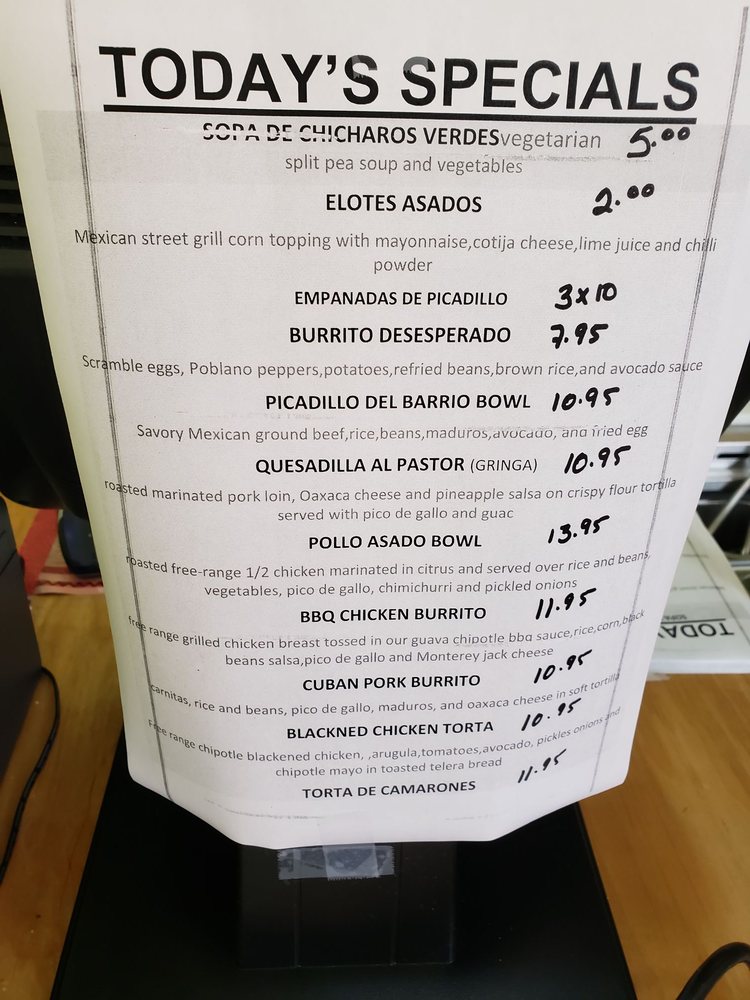 TODAY'S SPECIALS
SOPA DE CHICHAROS VERDESvegetarian 5.00
split pea soup and vegetables
ELOTES ASADOS 2.00
Mexican street grill corn topping with mayonnaise,cotija cheese,lime juice and chilli
powder
EMPANADAS DE PICADILLO 3x10
BURRITO DESESPERADO 7.95
Scramble eggs, Poblano peppers,potatoes,refried beans,brown rice,and avocado sauce
PICADILLO DEL BARRIO BOWL 10.95
Savory Mexican ground beef,rice,beans,maduros,avocado, and fried egg
QUESADILLA AL PASTOR (GRINGA) 10.95
roasted marinated pork loin, Oaxaca cheese and pineapple salsa on crispy flour tortilla
served with pico de gallo and guac
POLLO ASADO BOWL 13.95
roasted free-range 1/2 chicken marinated in citrus and served over rice and beans,
vegetables, pico de gallo, chimichurri and pickled onions
BBQ CHICKEN BURRITO 11.95
free range grilled chicken breast tossed in our guava chipotle bbq sauce,rice,corn,black
beans salsa,pico de gallo and Monterey jack cheese
CUBAN PORK BURRITO 10.95
carnitas, rice and beans, pico de gallo, maduros, and oaxaca cheese in soft tortilla
BLACKNED CHICKEN TORTA 10.95
Free range chipotle blackened chicken, ,arugula,tomatoes,avocado, pickles onions and
chipotle mayo in toasted telera bread
TORTA DE CAMARONES 11.95
TODA
SOPA